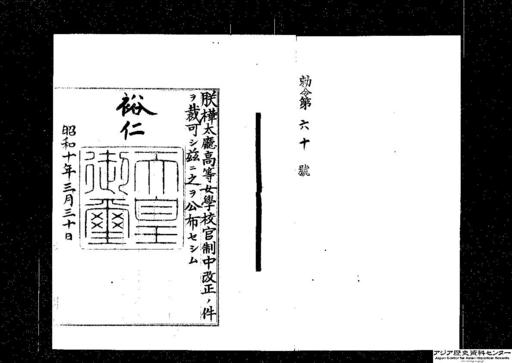 勅令第六十號
朕樺太廳高等女學校官制中改正ノ件
ヲ裁可シ茲ニ之ヲ公布セシム
裕仁
天皇御璽
昭和十年三月三十日
アジア歴史資料センター
Japan Center for Asian Historical Records